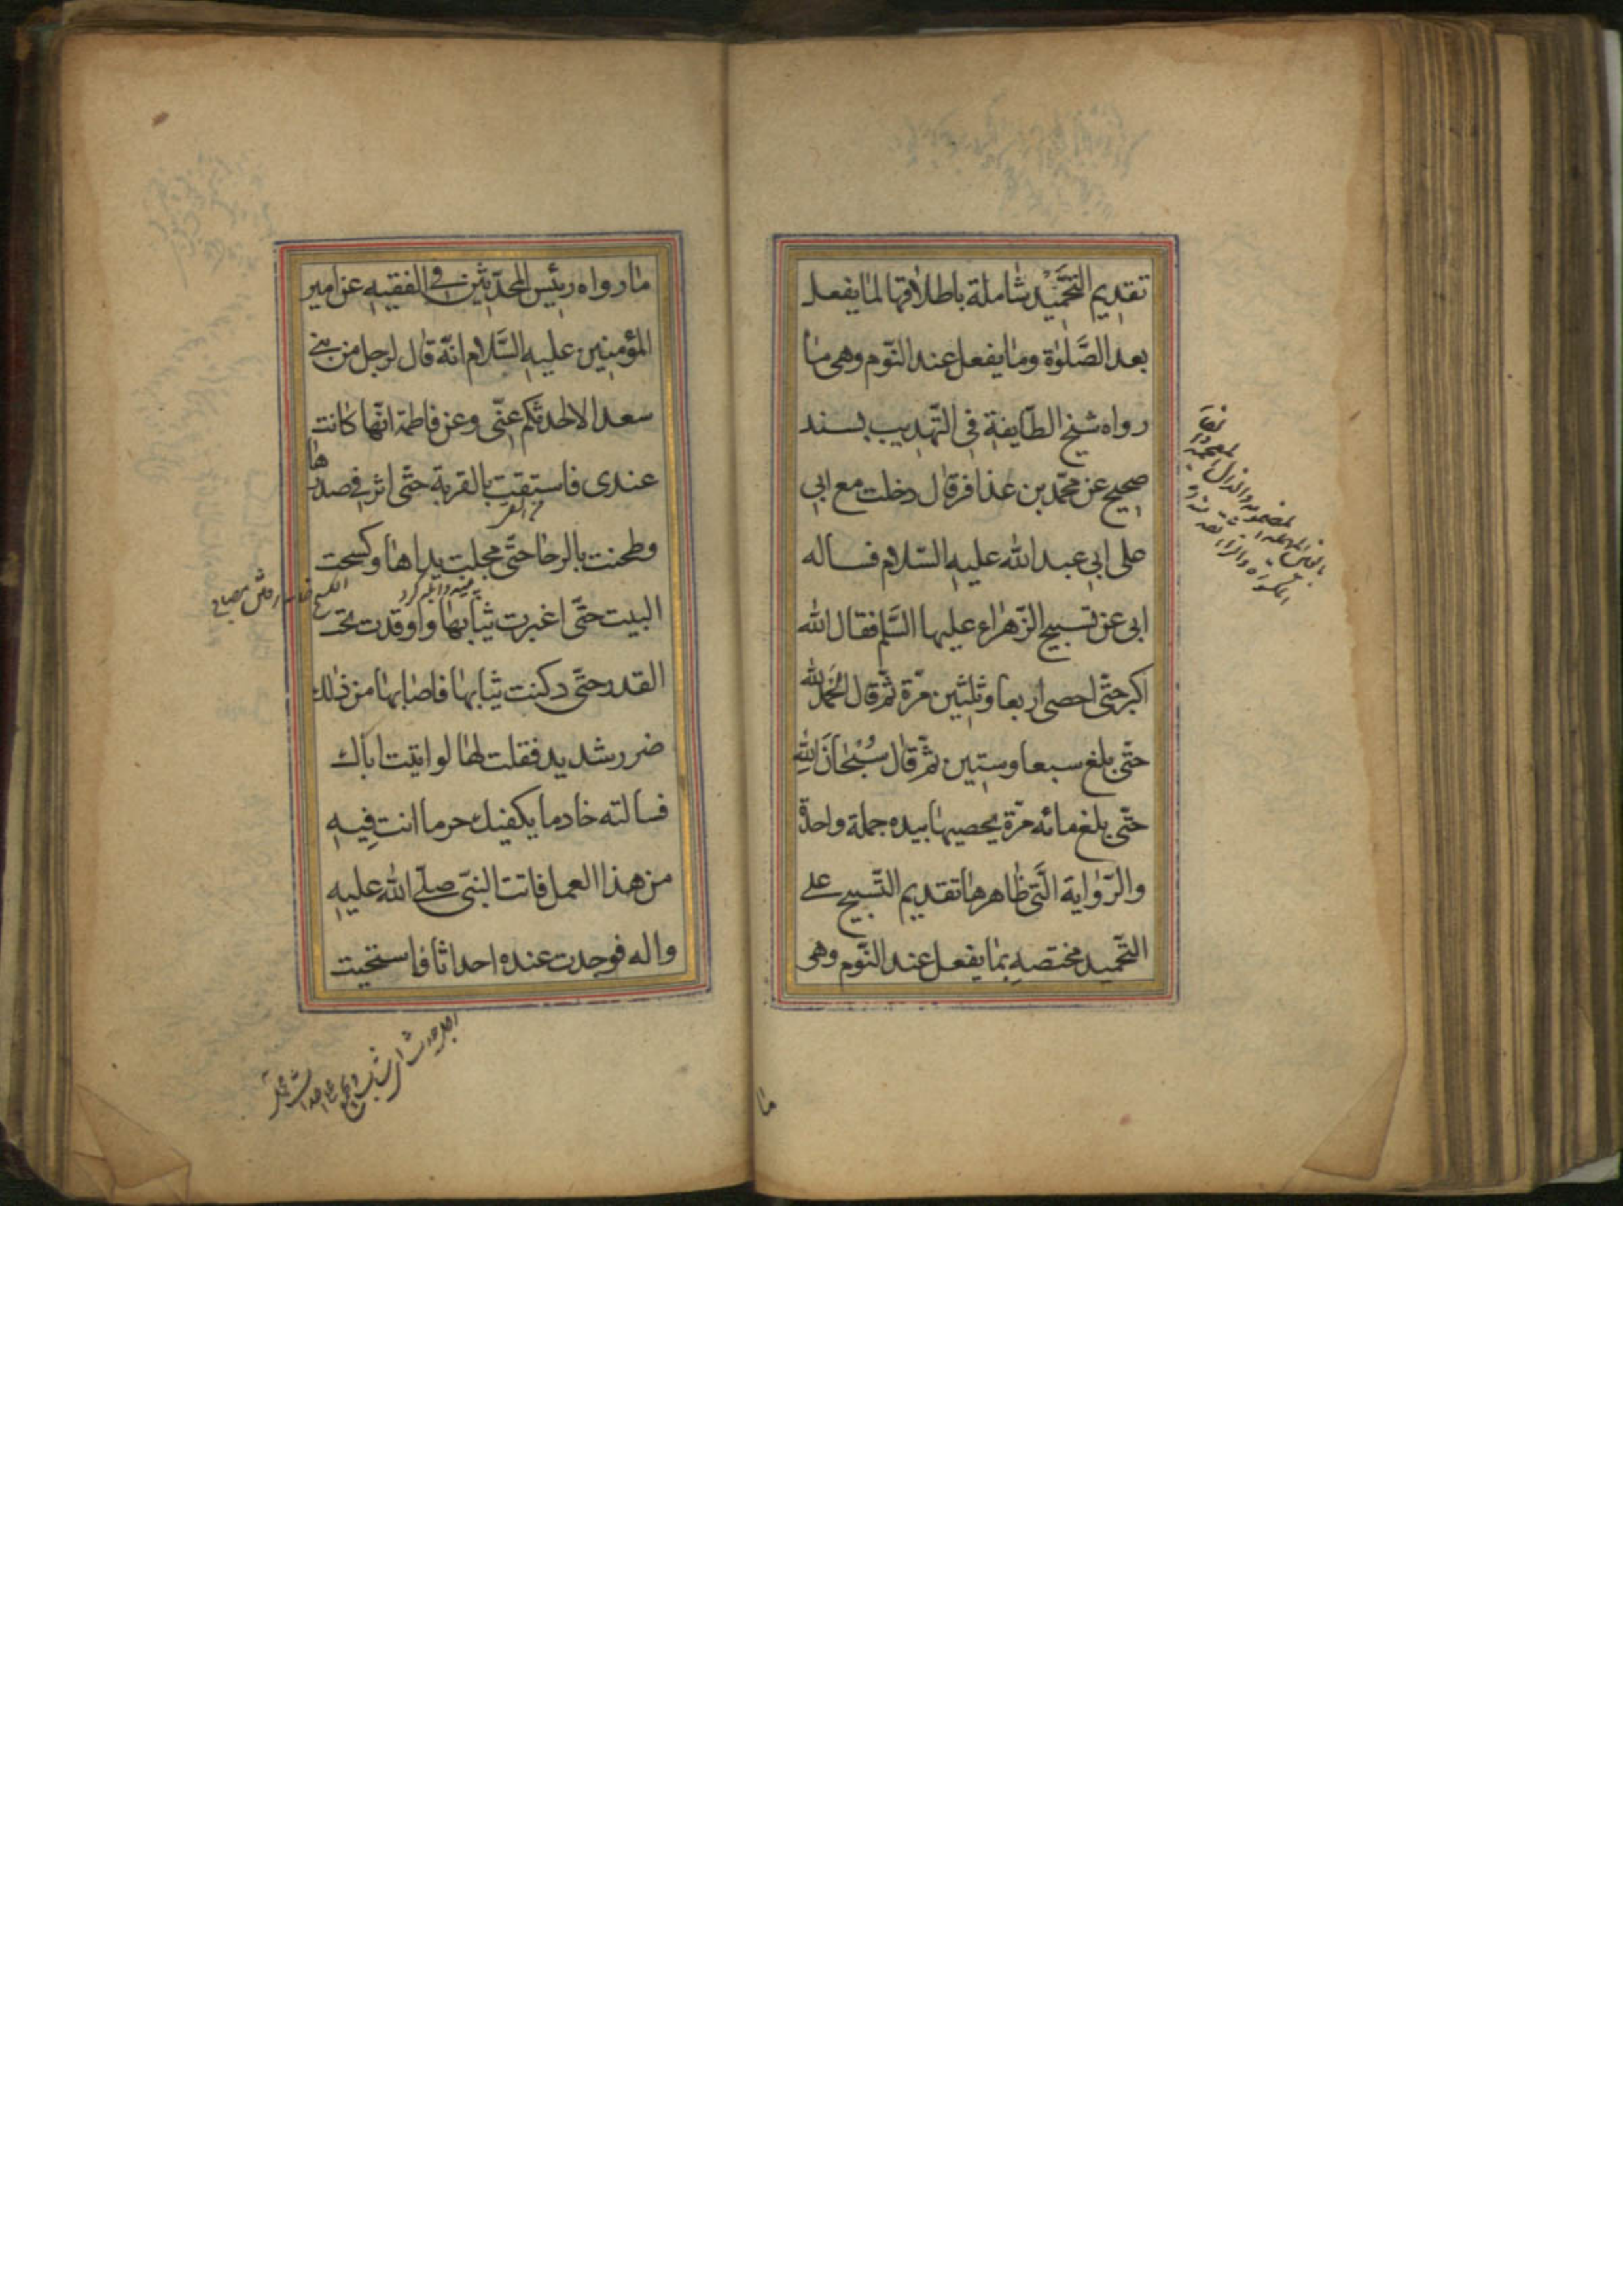 تقديم التَّحْميد شاملة باطلاقها لما يفعل
بعد الصَّلوٰة وما يفعل عند النّوم وهى ما
رواه شيخ الطّايفة في التّهذيب بسند
صحيح عن محمّد بن عذافر قال دخلت مع ابي
على ابي عبد الله عليه السّلام فساله
ابي عن تسبيح الزّهراء عليها السّلم فقال الله
اكبر حتّى احصى اربعا وثلثين مرّة ثمّ قال الحَمدُ لله
حتّى بلغ سبعا وستين ثمّ قال سُبْحانَ اللهِ
حتّى بلغ مائه مرّة يحصيها بيده جملة واحدة
والرّواية الّتى ظاهرها تقديم التّسبيح على
التّحميد مختصه بما يفعل عند النّوم وهى
ما
ما رواه رئيس المحدّثين في الفقيه عن امير
المؤمنين عليه السَّلام انّه قال لرجل من بنے
سعد الا احدثكم عنّى وعن فاطمة انّها كانت
عندى فاستقت بالقربة حتّى اثر في صدرها
وطحنت بالرحا حتّى مجلت يداها وكسحت
البيت حتّى اغبرت ثيابها واوقدت تحت
القدر حتّى دكنت ثيابها فاصابها من ذلك
ضرر شديد فقلت لها لو اتيت اباك
فسالته خادما يكفيك حر ما انت فيه
من هذا العمل فاتت النبّى صلّے الله عليه
واله فوجدت عنده احداثا فاستحيت